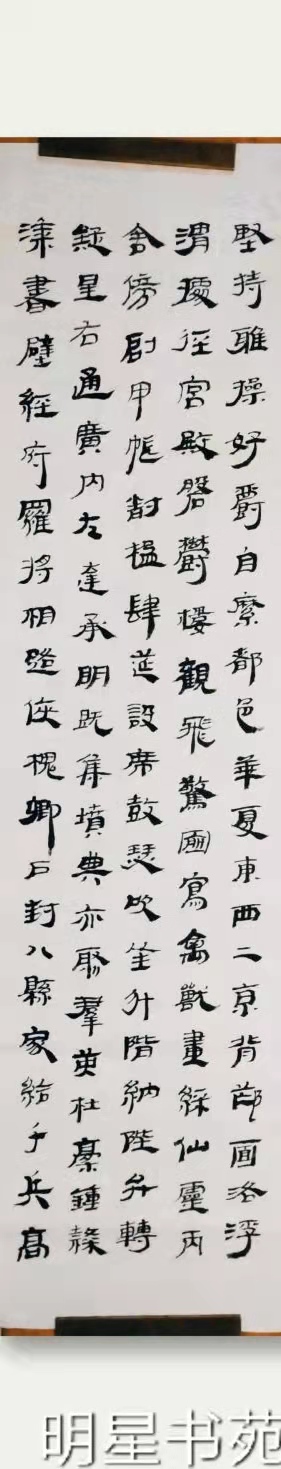 堅持雅操好爵自縻都邑華夏東西二京背邙面洛浮
渭據徑宮殿盤鬱樓觀飛驚圖寫禽獸畫綵仙靈丙
舍傍啟甲帳對楹肆筵設席鼓瑟吹笙升階納陛弁轉
疑星右通廣內左達承明既集墳典亦聚羣英杜稾鍾隸
漆書壁經府羅將相路俠槐卿戶封八縣家給千兵高
明星书苑